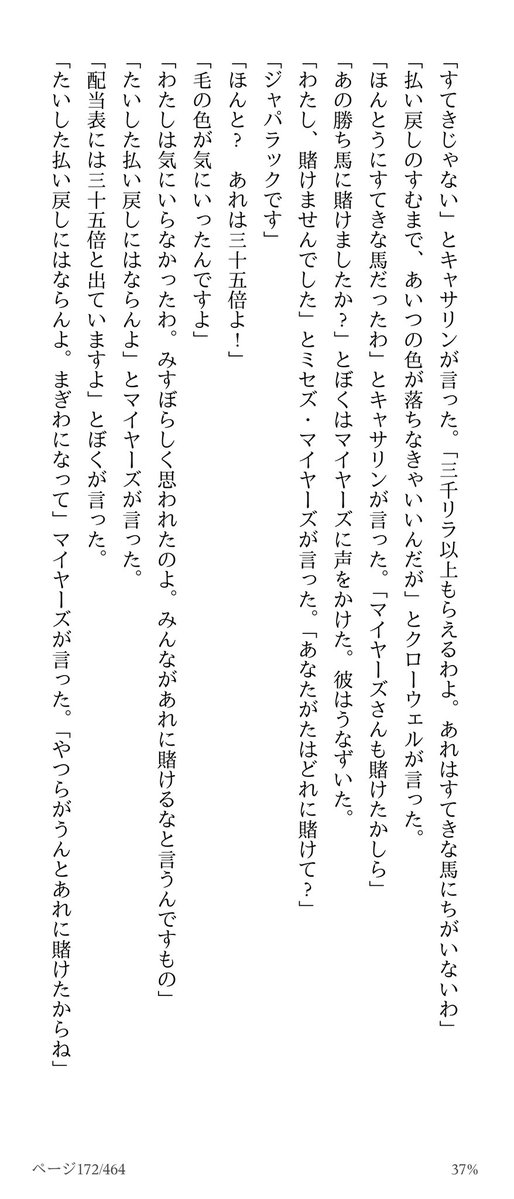 「すてきじゃない」とキャサリンが言った。「三千リラ以上もらえるわよ。あれはすてきな馬にちがいないわ」
「払い戻しのすむまで、あいつの色が落ちなきゃいいんだが」とクローウェルが言った。
「ほんとうにすてきな馬だったわ」とキャサリンが言った。「マイヤーズさんも賭けたかしら」
「あの勝ち馬に賭けましたか？」とぼくはマイヤーズに声をかけた。彼はうなずいた。
「わたし、賭けませんでした」とミセズ・マイヤーズが言った。「あなたがたはどれに賭けて？」
「ジャパラックです」
「ほんと？　あれは三十五倍よ！」
「毛の色が気にいったんですよ」
「わたしは気にいらなかったわ。みすぼらしく思われたのよ。みんながあれに賭けるなと言うんですもの」
「たいした払い戻しにはならんよ」とマイヤーズが言った。
「配当表には三十五倍と出ていますよ」とぼくが言った。
「たいした払い戻しにはならんよ。まぎわになって」マイヤーズが言った。「やつらがうんとあれに賭けたからね」
ページ172/464
37%